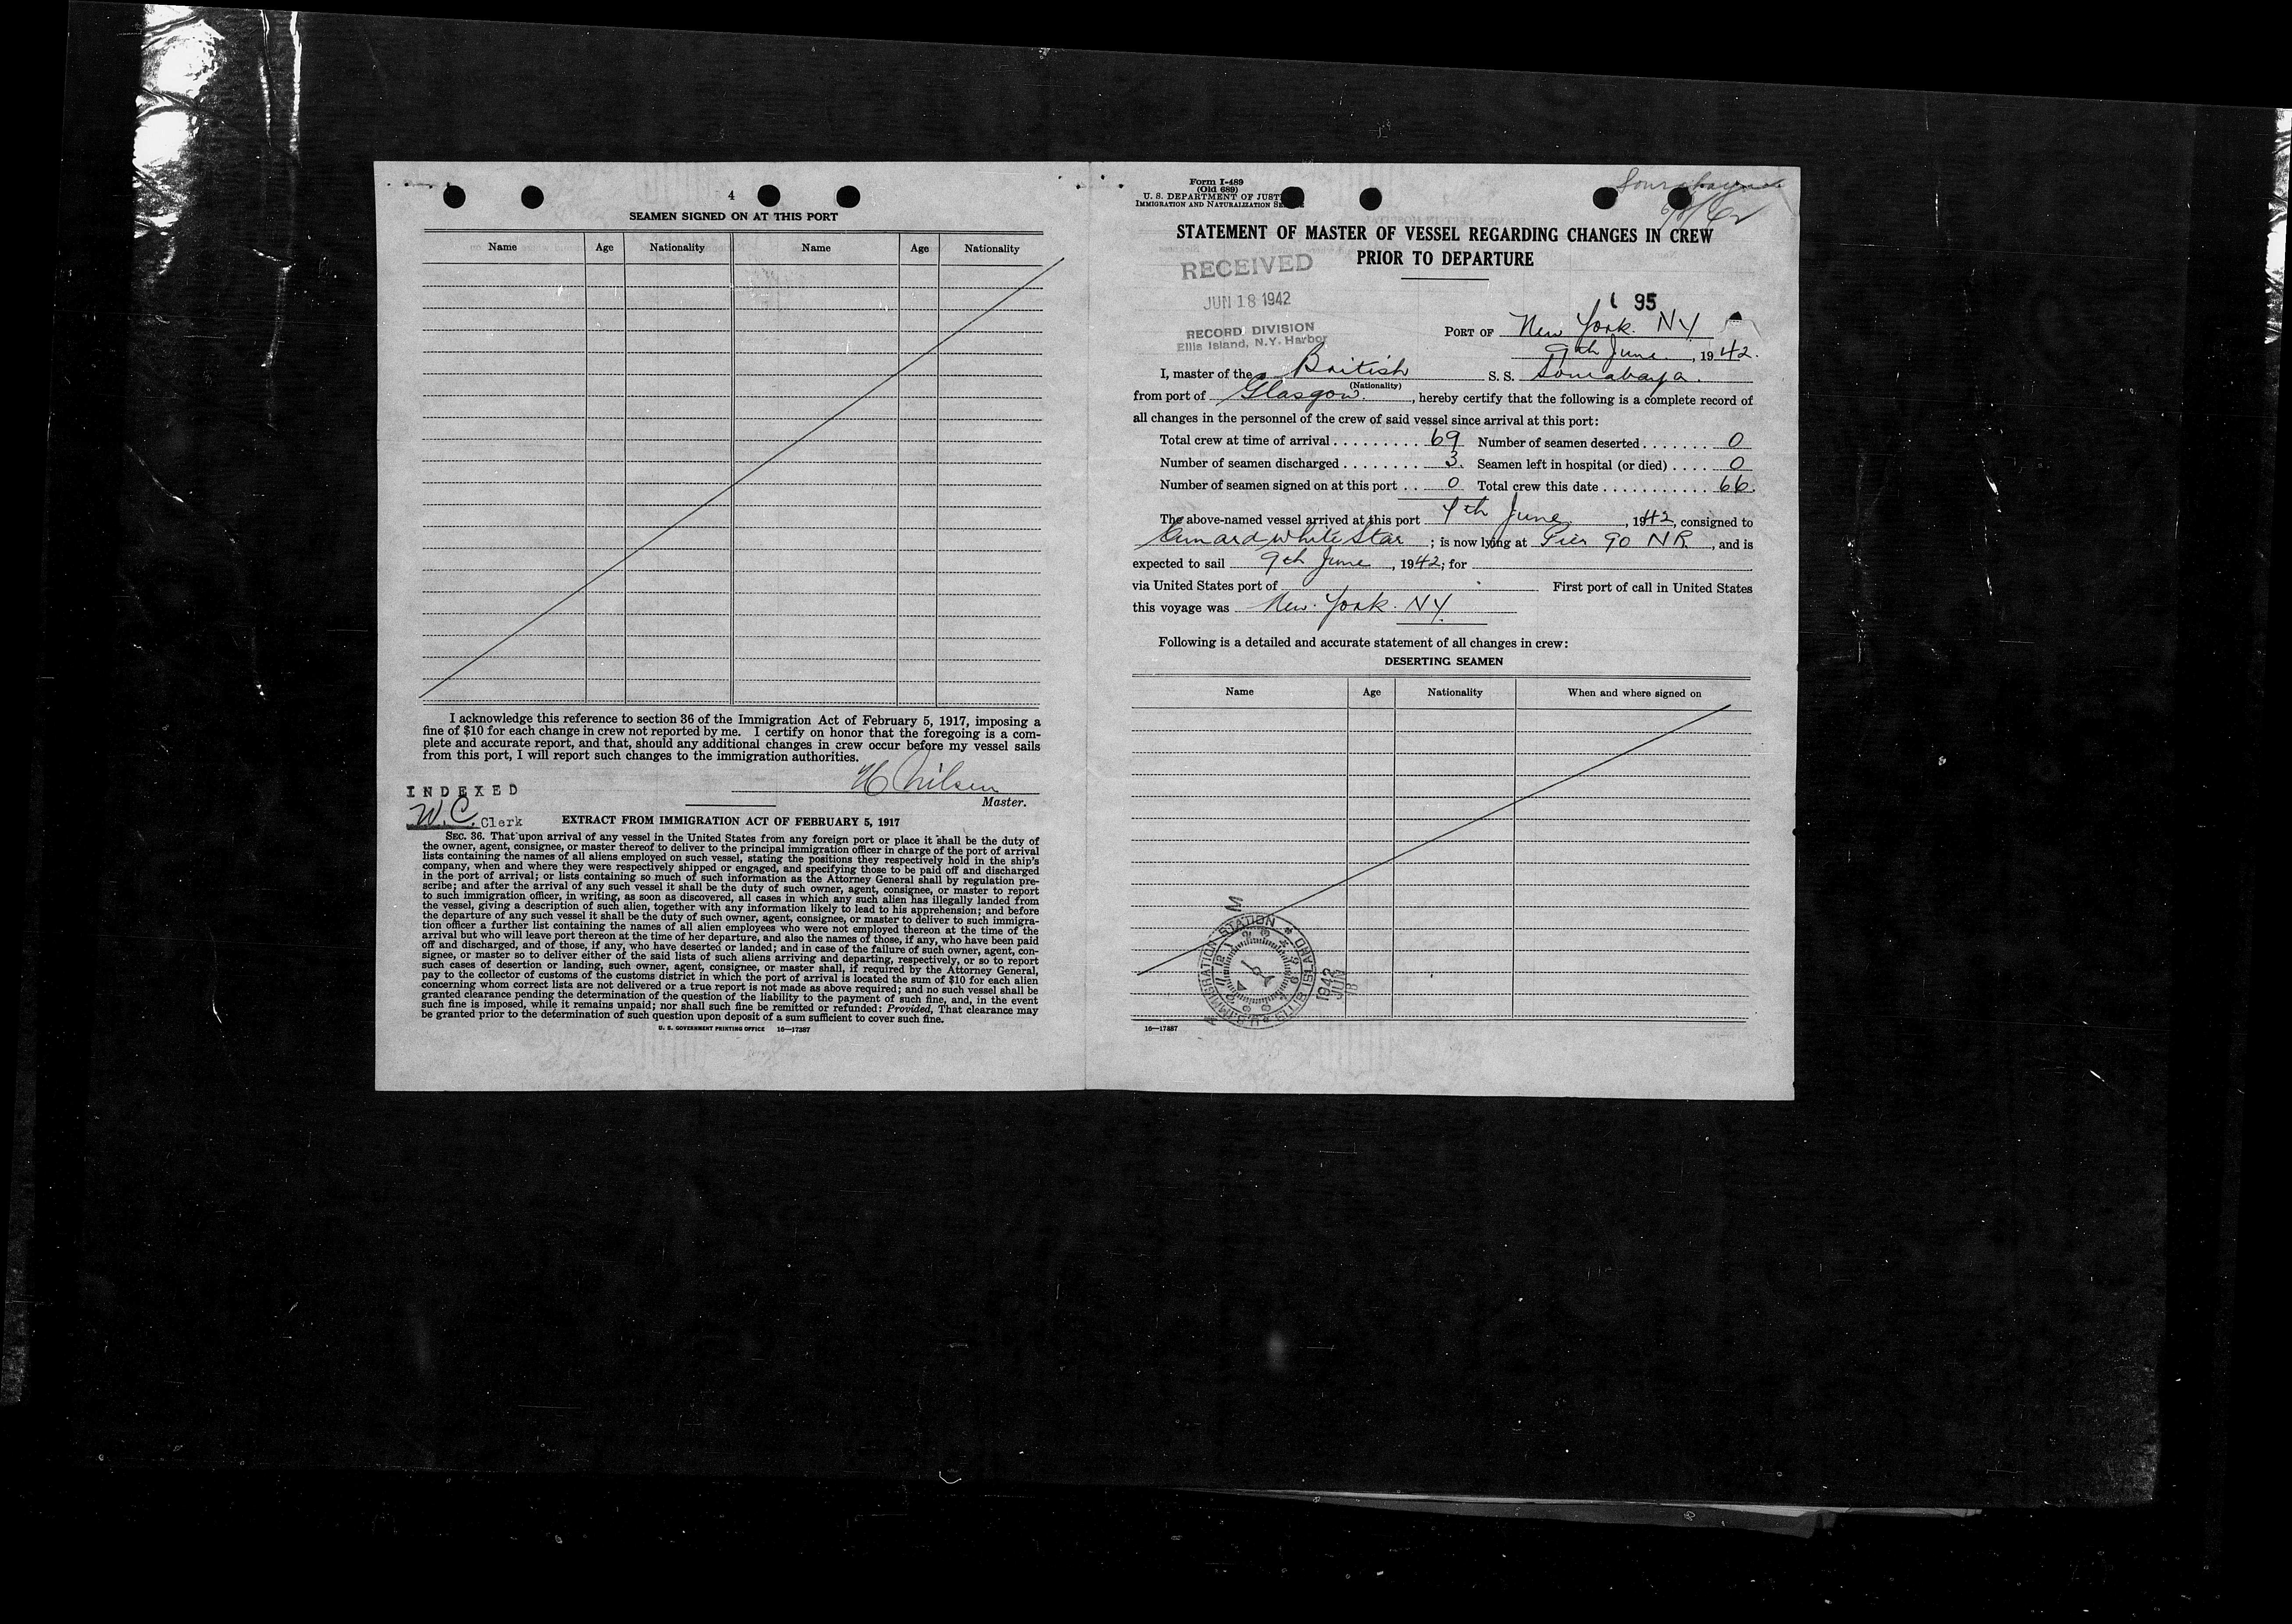 4
SEAMEN SIGNED ON AT THIS PORT
Name Age Nationality Name Age Nationality
I acknowledge this reference to section 36 of the Immigration Act of February 5, 1917, imposing a
fine of $10 for each change in crew not reported by me. I certify on honor that the foregoing is a com-
plete and accurate report, and that, should any additional changes in crew occur before my vessel sails
from this port, I will report such changes to the immigration authorities.
H Nilsen
Master.
INDEXED
W.C. Clerk
EXTRACT FROM IMMIGRATION ACT OF FEBRUARY 5, 1917
SEC. 36. That upon arrival of any vessel in the United States from any foreign port or place it shall be the duty of
the owner, agent, consignee, or master thereof to deliver to the principal immigration officer in charge of the port of arrival
lists containing the names of all aliens employed on such vessel, stating the positions they respectively hold in the ship's
company, when and where they were respectively shipped or engaged, and specifying those to be paid off and discharged
in the port of arrival; or lists containing so much of such information as the Attorney General shall by regulation pre-
scribe; and after the arrival of any such vessel it shall be the duty of such owner, agent, consignee, or master to report
to such immigration officer, in writing, as soon as discovered, all cases in which any such alien has illegally landed from
the vessel, giving a description of such alien, together with any information likely to lead to his apprehension; and before
the departure of any such vessel it shall be the duty of such owner, agent, consignee, or master to deliver to such immigra-
tion officer a further list containing the names of all alien employees who were not employed thereon at the time of the
arrival but who will leave port thereon at the time of her departure, and also the names of those, if any, who have been paid
off and discharged, and of those, if any, who have deserted or landed; and in case of the failure of such owner, agent, con-
signee, or master so to deliver either of the said lists of such aliens arriving and departing, respectively, or so to report
such cases of desertion or landing, such owner, agent, consignee, or master shall, if required by the Attorney General,
pay to the collector of customs of the customs district in which the port of arrival is located the sum of $10 for each alien
concerning whom correct lists are not delivered or a true report is not made as above required; and no such vessel shall be
granted clearance pending the determination of the question of the liability to the payment of such fine, and, in the event
such fine is imposed, while it remains unpaid; nor shall such fine be remitted or refunded: Provided, That clearance may
be granted prior to the determination of such question upon deposit of a sum sufficient to cover such fine.
U. S. GOVERNMENT PRINTING OFFICE 16—17387
Form I-489
(Old 689)
U. S. DEPARTMENT OF JUST
IMMIGRATION AND NATURALIZATION SE
Sourabaya
STATEMENT OF MASTER OF VESSEL REGARDING CHANGES IN CREW
PRIOR TO DEPARTURE
RECEIVED
JUN 18 1942
RECORD DIVISION
Ellis Island, N.Y. Harbor
95
PORT OF New York. NY
9th June, 1942.
I, master of the British S. S. Sourabaya.
(Nationality)
from port of Glasgow., hereby certify that the following is a complete record of
all changes in the personnel of the crew of said vessel since arrival at this port:
Total crew at time of arrival . . . . . . . . . . 69 Number of seamen deserted . . . . . . . 0
Number of seamen discharged . . . . . . . . 3. Seamen left in hospital (or died) . . . . 0
Number of seamen signed on at this port . . 0 Total crew this date . . . . . . . . . . . 66.
The above-named vessel arrived at this port th June, 1942, consigned to
Cunard White Star; is now lying at Pier 90 NR, and is
expected to sail 9th June, 1942; for
via United States port of First port of call in United States
this voyage was New York. NY.
Following is a detailed and accurate statement of all changes in crew:
DESERTING SEAMEN
Name Age Nationality When and where signed on
U.S. IMMIGRATION STATION * ELLIS ISLAND *
1942
JUN
18
M
16—17387